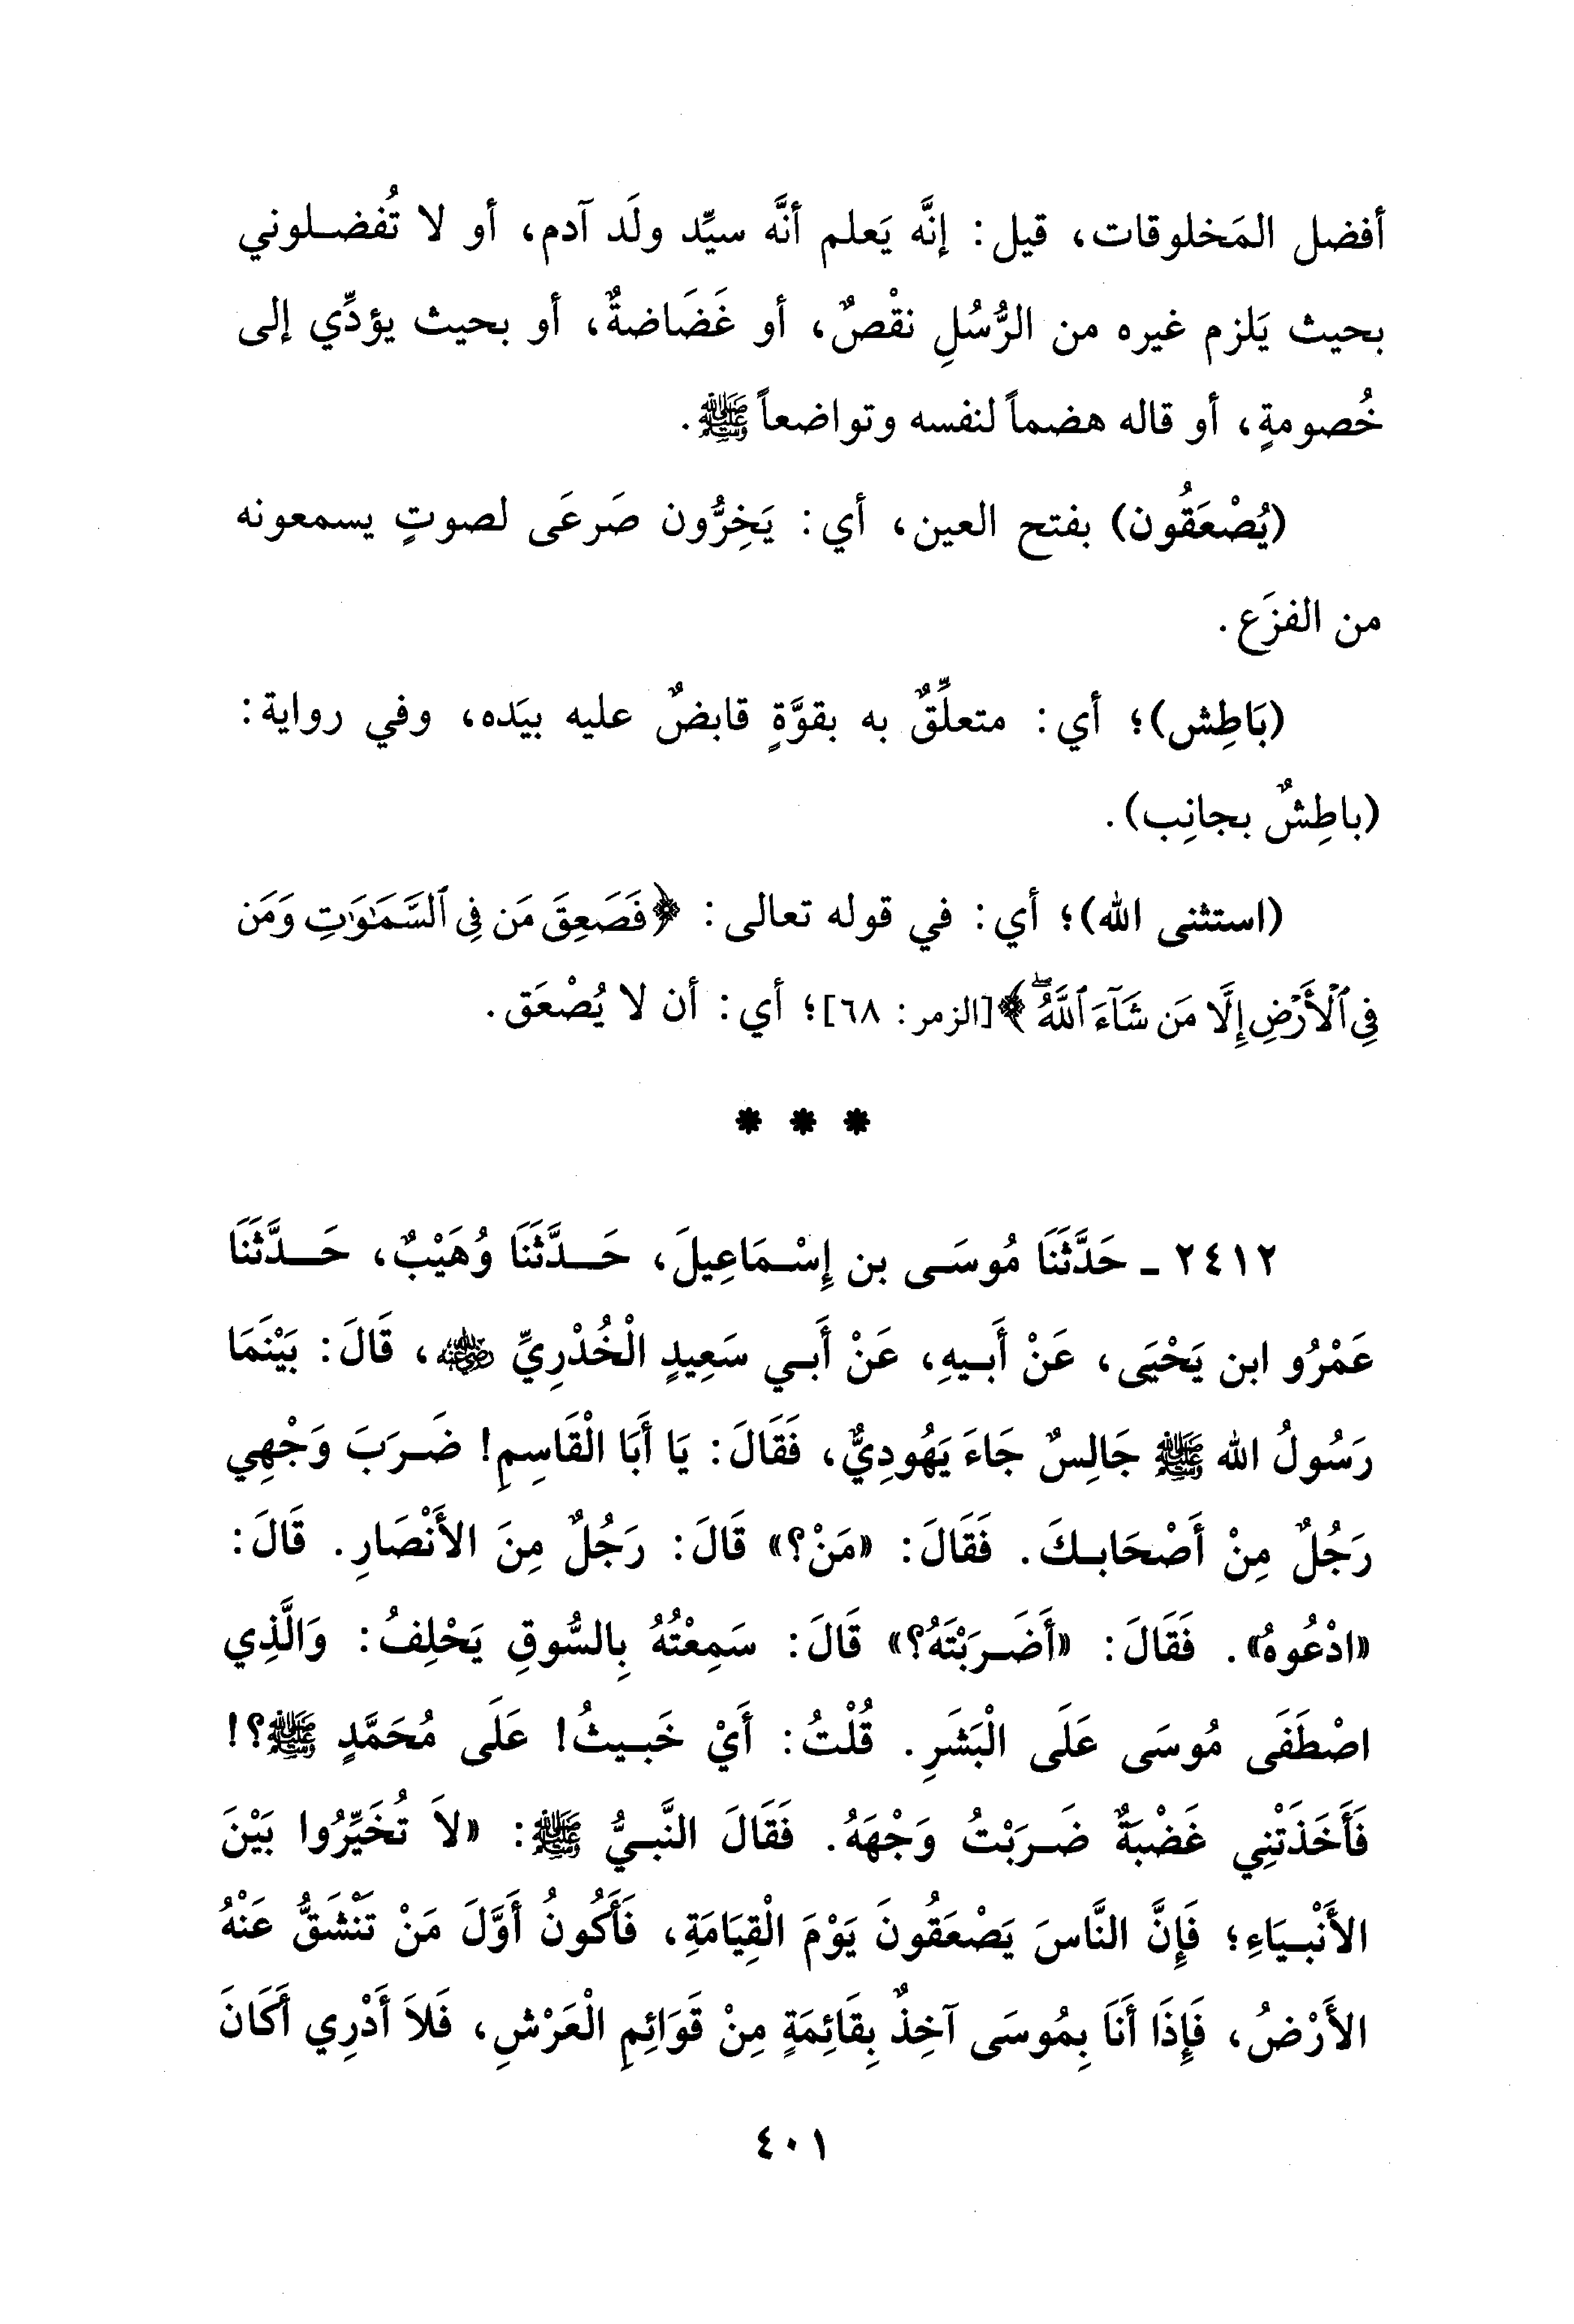 أفضل المَخلوقات، قيل: إنَّه يَعلم أنَّه سيِّد ولَد آدم، أو لا تُفضلوني
بحيث يَلزم غيره من الرُّسُلِ نقْصٌ، أو غَضَاضةٌ، أو بحيث يؤدِّي إلى
خُصومةٍ، أو قاله هضماً لنفسه وتواضعاً ﷺ.
(يُصْعَقُون) بفتح العين، أي: يَخِرُّون صَرعَى لصوتٍ يسمعونه
من الفزَع.
(بَاطِش)؛ أي: متعلِّقٌ به بقوَّةٍ قابضٌ عليه بيَده، وفي رواية:
(باطِشٌ بجانِب).
(استثنى الله)؛ أي: في قوله تعالى: ﴿فَصَعِقَ مَن فِى ٱلسَّمَٰوَٰتِ وَمَن
فِى ٱلْأَرْضِ إِلَّا مَن شَآءَ ٱللَّهُۖ﴾ [الزمر: ٦٨]؛ أي: أن لا يُصْعَق.
* * *
٢٤١٢ ـ حَدَّثَنَا مُوسَى بن إِسْمَاعِيلَ، حَدَّثَنَا وُهَيْبٌ، حَدَّثَنَا
عَمْرُو ابن يَحْيَى، عَنْ أَبِيهِ، عَنْ أَبي سَعِيدٍ الْخُدْرِيِّ رضي الله عنه، قَالَ: بَيْنَمَا
رَسُولُ الله ﷺ جَالِسٌ جَاءَ يَهُودِيٌّ، فَقَالَ: يَا أَبَا الْقَاسِمِ! ضَرَبَ وَجْهِي
رَجُلٌ مِنْ أَصْحَابكَ. فَقَالَ: «مَنْ؟» قَالَ: رَجُلٌ مِنَ الأَنْصَارِ. قَالَ:
«ادْعُوهُ». فَقَالَ: «أَضَرَبْتَهُ؟» قَالَ: سَمِعْتُهُ بِالسُّوقِ يَحْلِفُ: وَالَّذِي
اصْطَفَى مُوسَى عَلَى الْبَشَرِ. قُلْتُ: أَيْ خَبيثُ! عَلَى مُحَمَّدٍ ﷺ؟!
فَأَخَذَتْنِي غَضْبَةٌ ضَرَبْتُ وَجْهَهُ. فَقَالَ النَّبيُّ ﷺ: «لاَ تُخَيِّرُوا بَيْنَ
الأَنْبيَاءِ؛ فَإِنَّ النَّاسَ يَصْعَقُونَ يَوْمَ الْقِيَامَةِ، فَأَكُونُ أَوَّلَ مَنْ تَنْشَقُّ عَنْهُ
الأَرْضُ، فَإِذَا أَنَا بِمُوسَى آخِذٌ بِقَائِمَةٍ مِنْ قَوَائِمِ الْعَرْشِ، فَلاَ أَدْرِي أَكَانَ
٤٠١